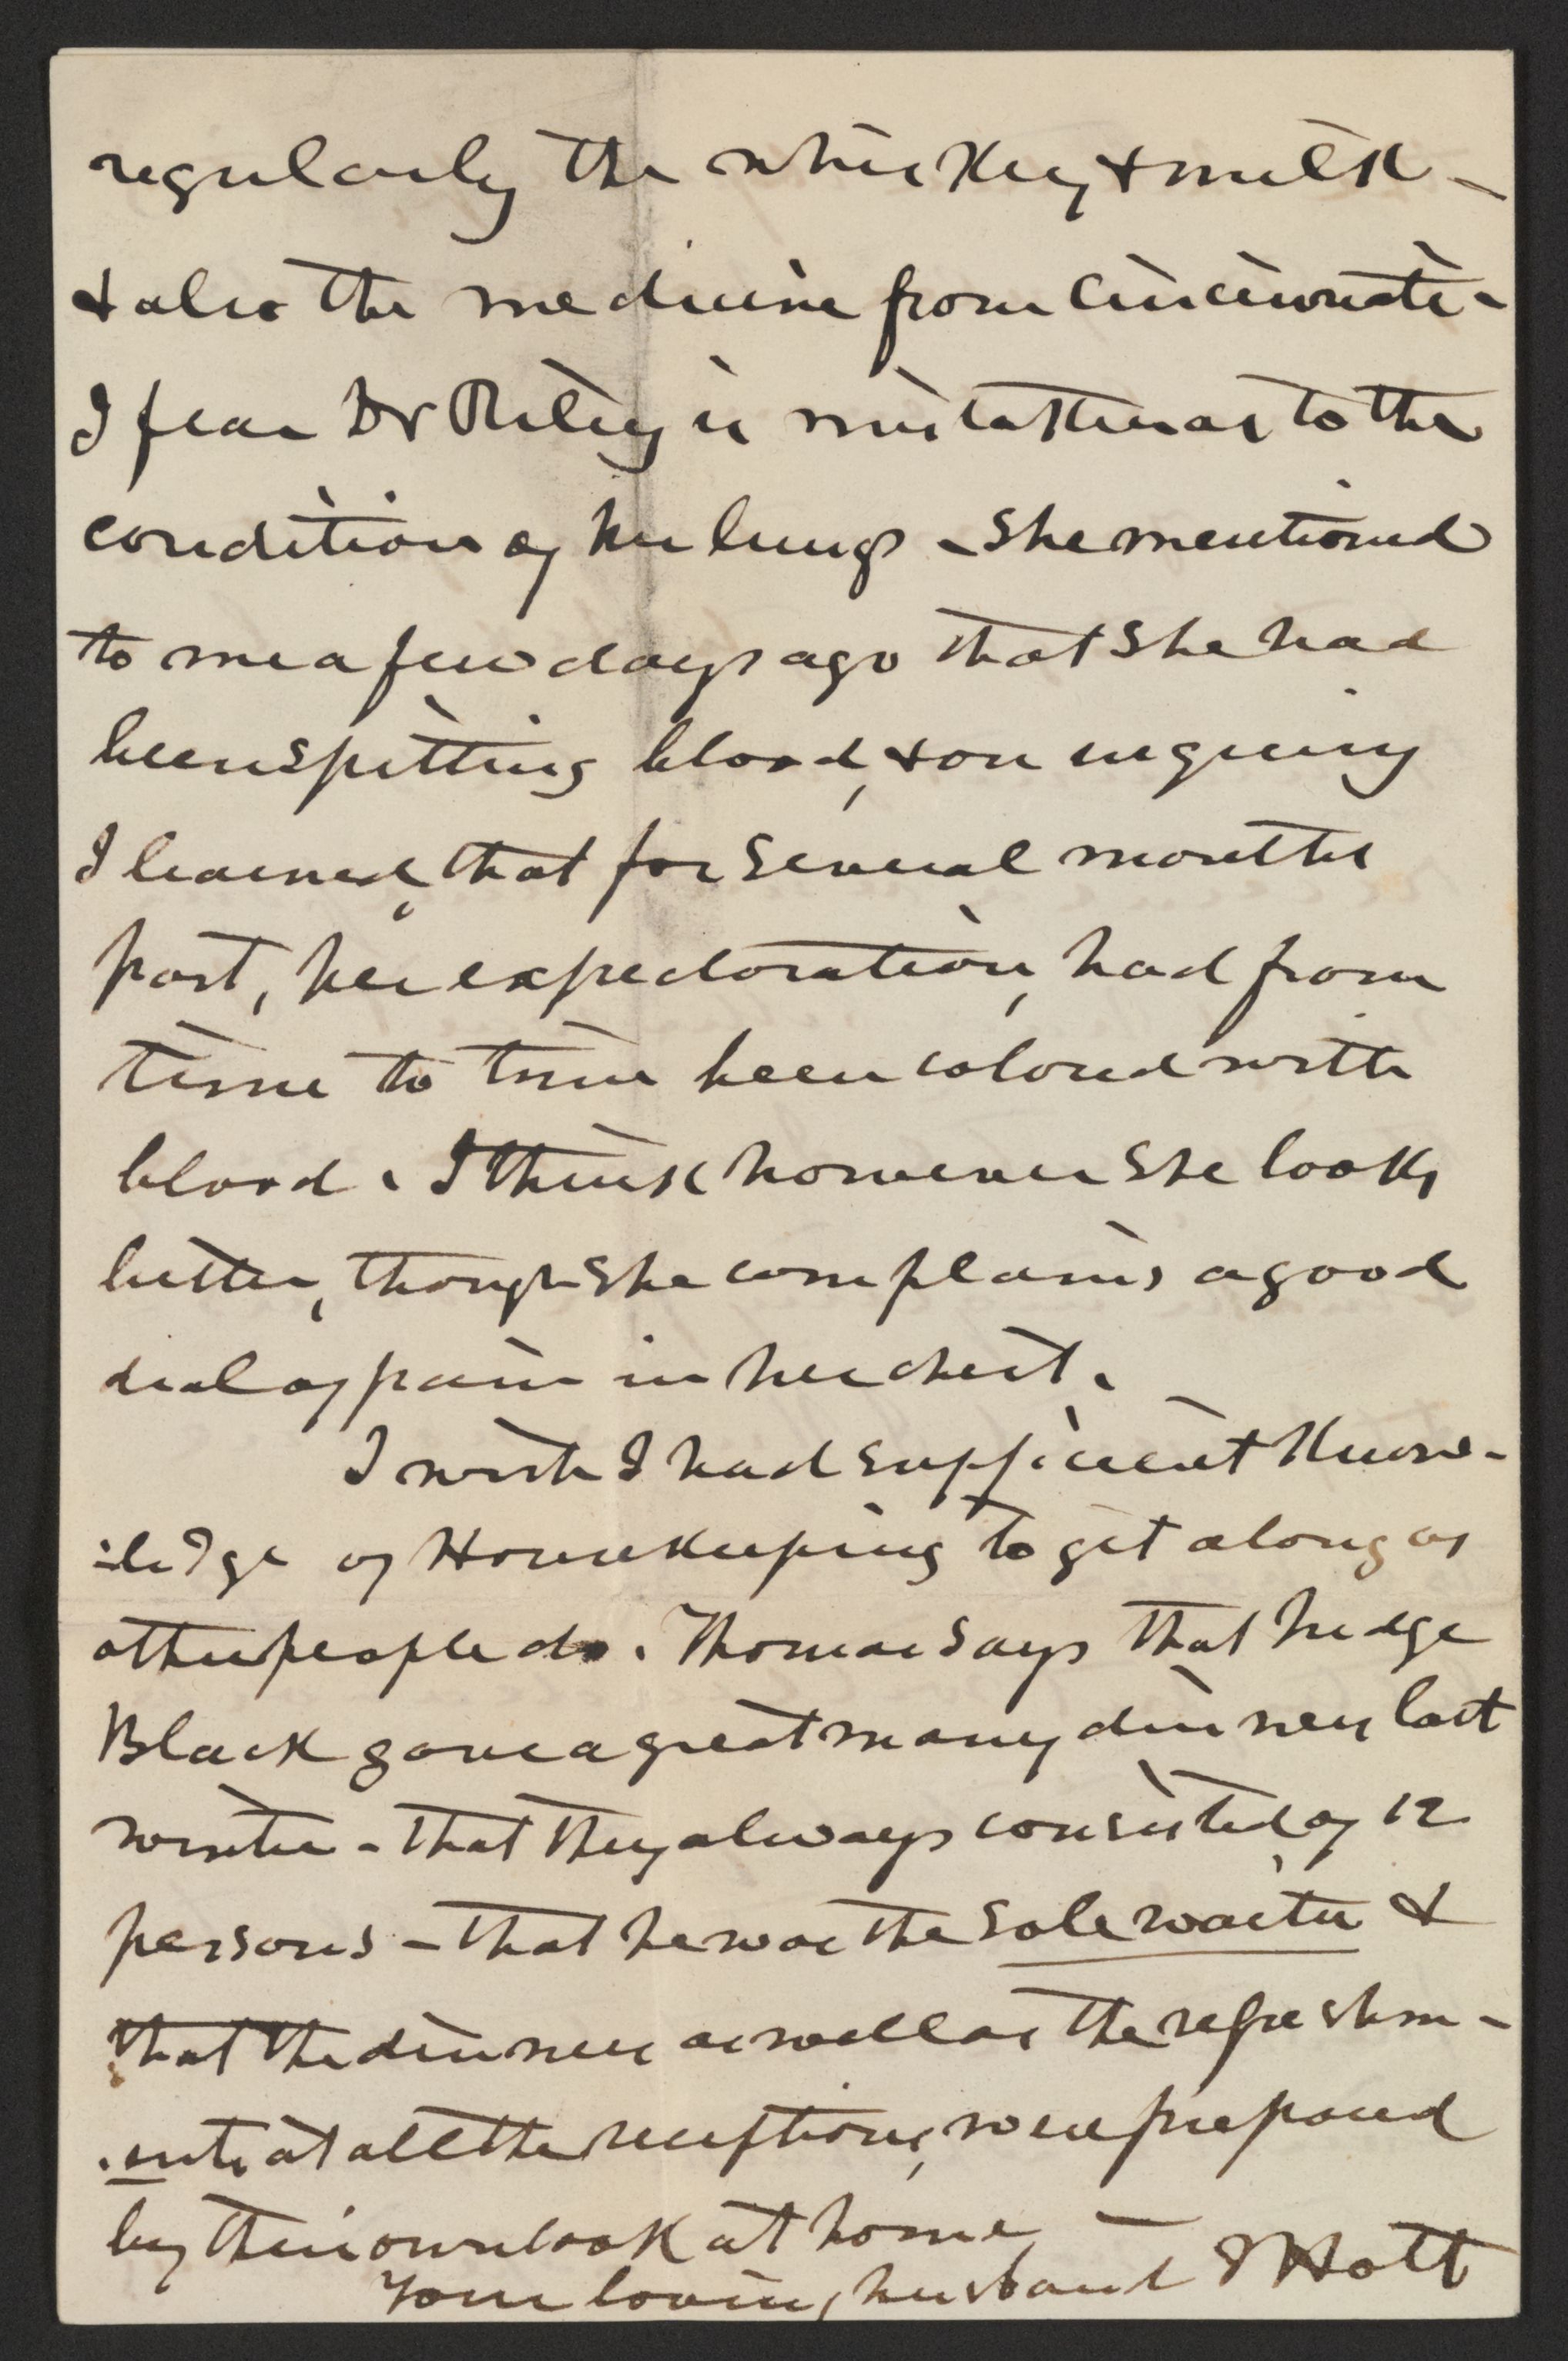 regularly the whiskey & milk -
& also the medicine from Cincinnati -
I fear Dr Riley is mistaken as to the
condition of her lungs - She mentioned
to me a few days ago that She had
been Spitting blood, & on inquiry
I learned, that for Several months
past, her expectoration, had from
time to time been colored with
blood. I think however She looks
better, though She complains a good
deal of pain in her chest.
I wish I had Sufficient Know-
:ledge of Housekeeping to get along as
other people do. Thomas Says that Judge
Black gave a great many dinners last
winter - that they always consisted of 12
persons - that he was the Sole waiter &
that the dinners as well as the refreshm-
.ents at all the receptions, were prepared
by their own cook at home
Your loving husband J Holt